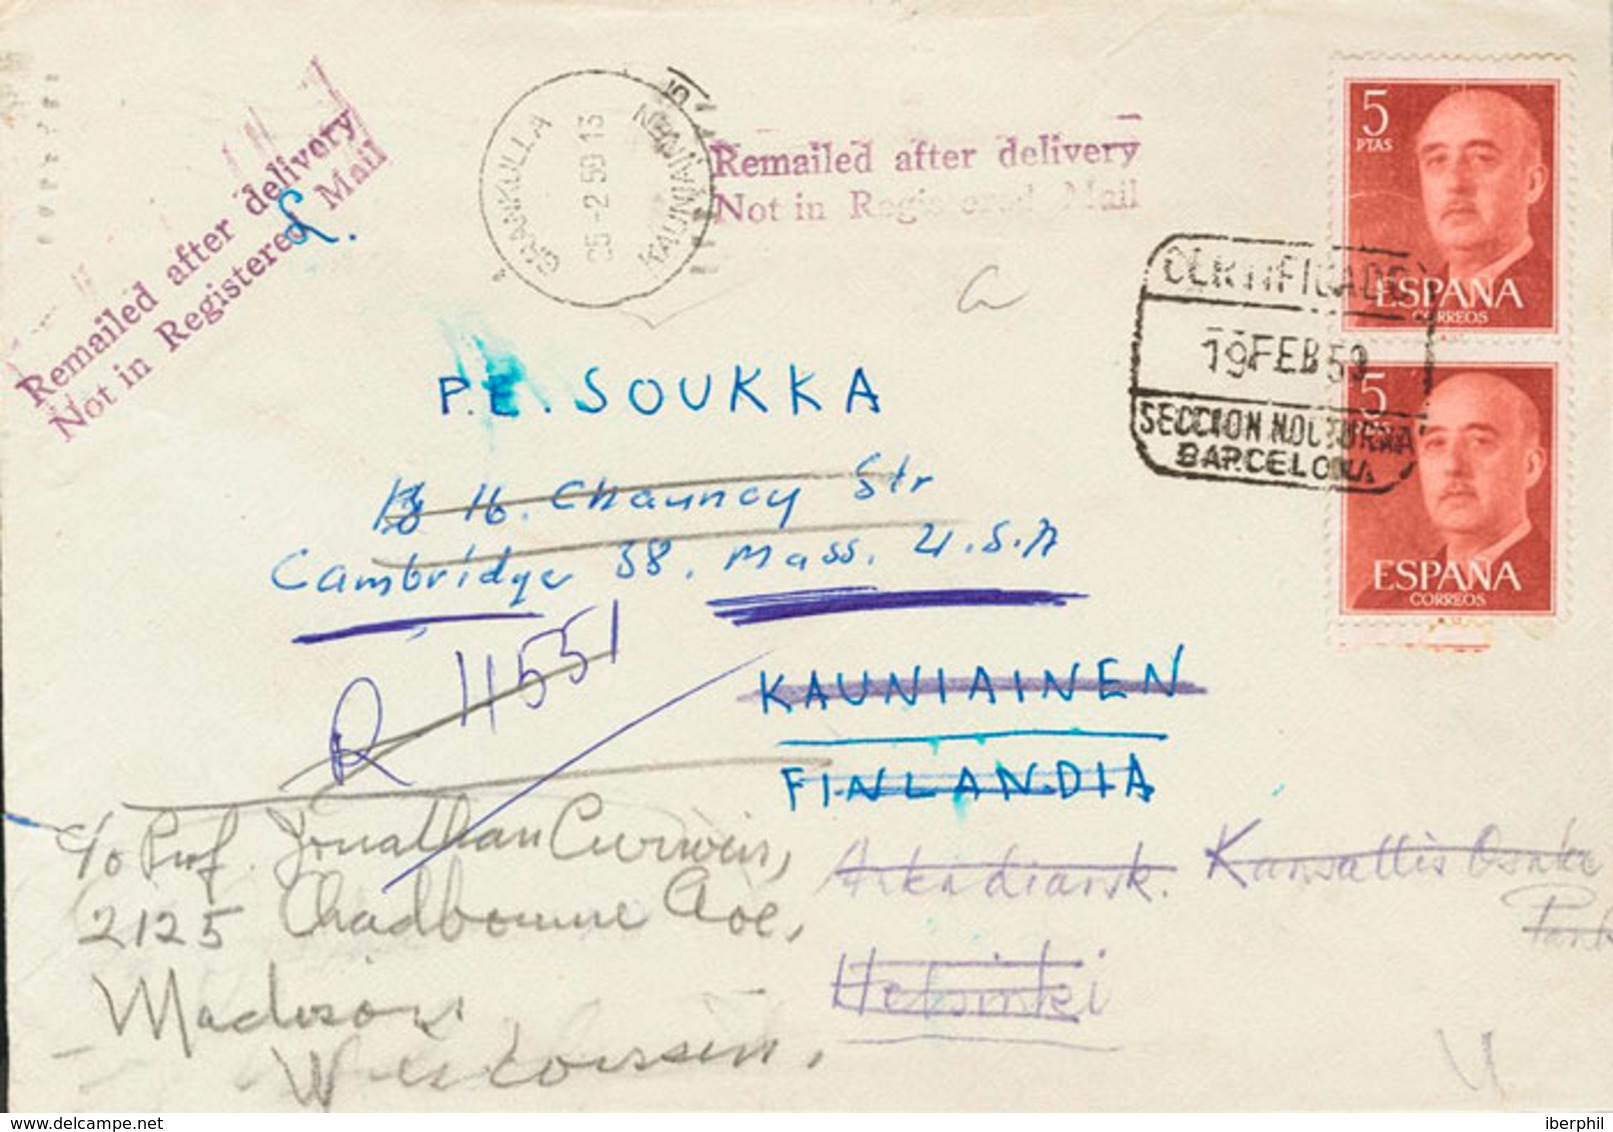 Remailed after delivery
Not in Registered Mail
L.
GRANKULLA
25-2.59 13
KAUNIAINEN
Remailed after delivery
Not in Registered Mail
5
PTAS
ESPAÑA
CORREOS
a
CERTIFICADO
19 FEB 59
SECCION NOCTURNA
BARCELONA
5
ESPAÑA
CORREOS
P.E. SOUKKA
16. Chauncy Str
Cambridge 38. Mass. U.S.A
R 11551
KAUNIAINEN
FINLANDIA
c/o Prof. Jonathan Curvin,
2125 Chadbourne Ave,
Madison,
Wisconsin.
Arkadiansk. Kansallis Osake
Pank
Helsinki
iberphil